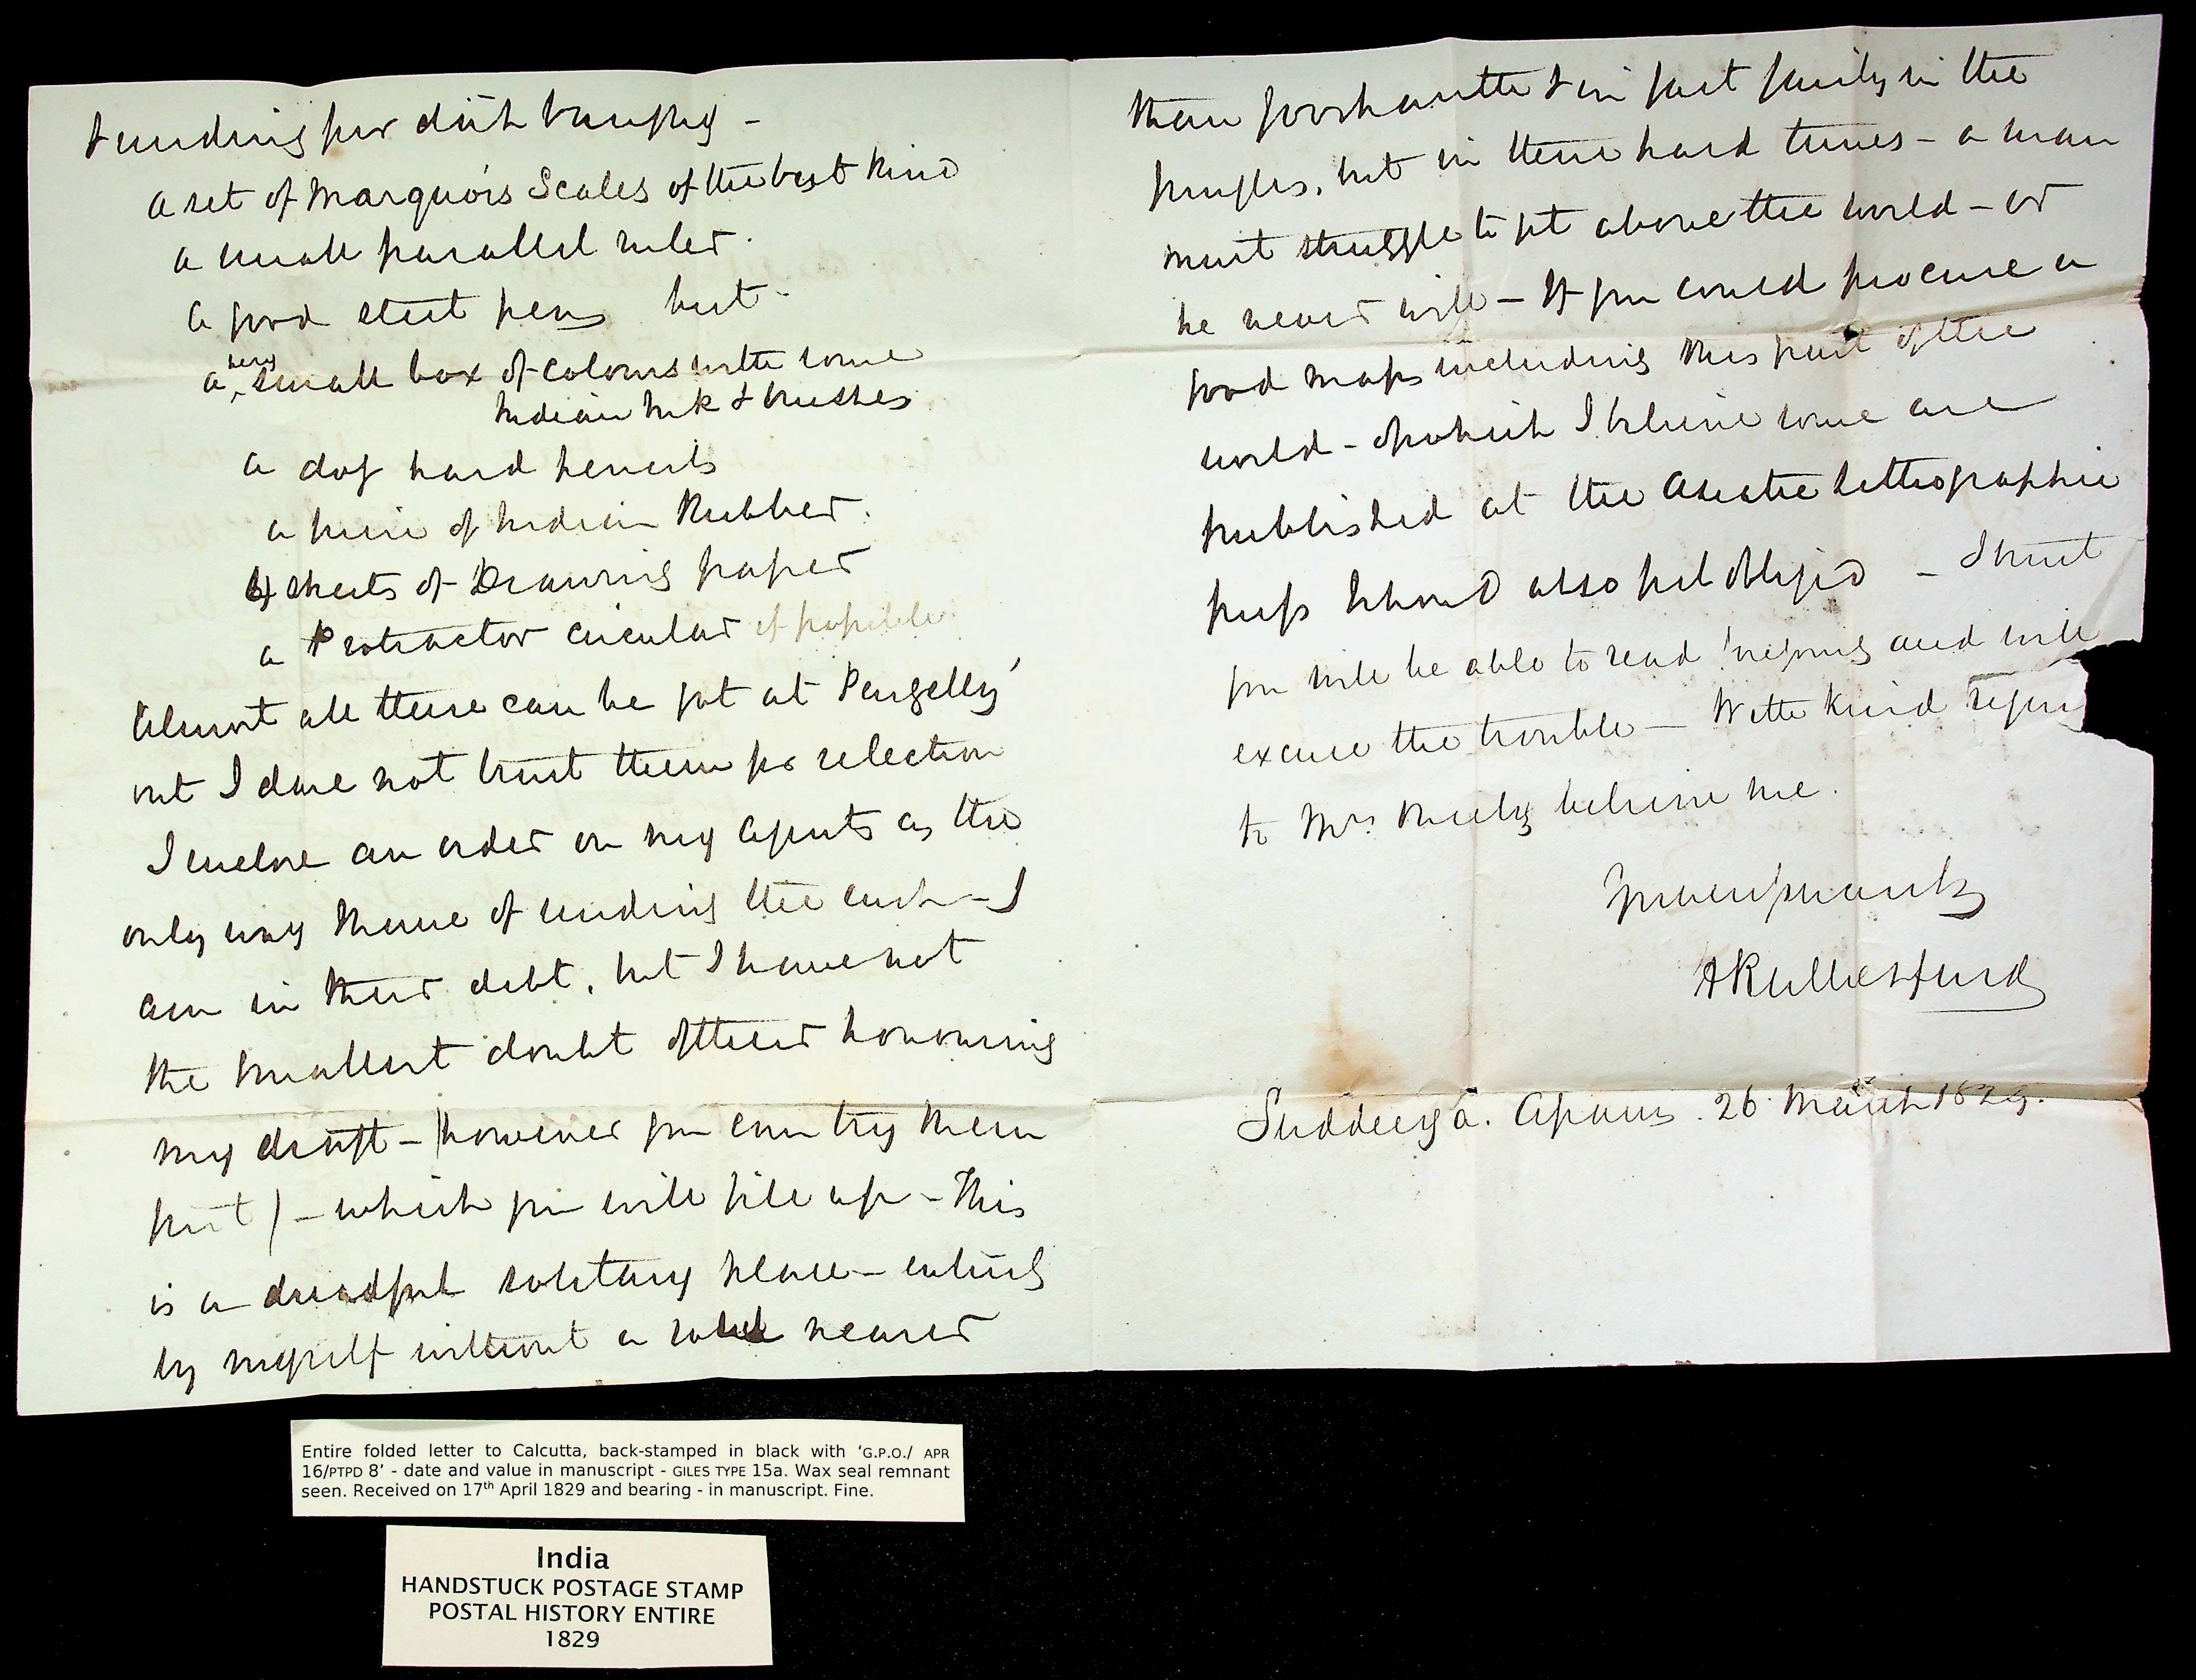 & sending per dâk banghy -
a set of Marquois Scales of the best kind
a small parallel ruler.
a good steel pen but -
a very small box of colours with some
Indian Ink & brushes
a doz hard pencils
a piece of Indian Rubber.
sheets of Drawing paper
a Protractor circular if possible
Almost all these can be got at Pengelly'
but I dare not trust them for selection
I enclose an order on my Agents as the
only way I have of sending the cash - I
am in their debt, but I have not
the smallest doubt of their honouring
my draft - (however you can try them
first) - which you will fill up - This
is a dreadful solitary place - entirely
by myself without a soul nearer
than & in fact fairly in the
jungles, but in these hard times - a man
must struggle to get above the world - or
he never will - If you could procure a
good map including this part of the
world - of which I believe some are
published at the Asiatic Lithographic
press I should also feel obliged - I trust
you will be able to read and will
excuse the trouble - With kind
to Mrs believe me.
Suddeeya. Assam. 26 March 1829.
Entire folded letter to Calcutta, back-stamped in black with ‘G.P.O./ APR
16/PTPD 8’ - date and value in manuscript - GILES TYPE 15a. Wax seal remnant
seen. Received on 17th April 1829 and bearing - in manuscript. Fine.
India
HANDSTUCK POSTAGE STAMP
POSTAL HISTORY ENTIRE
1829